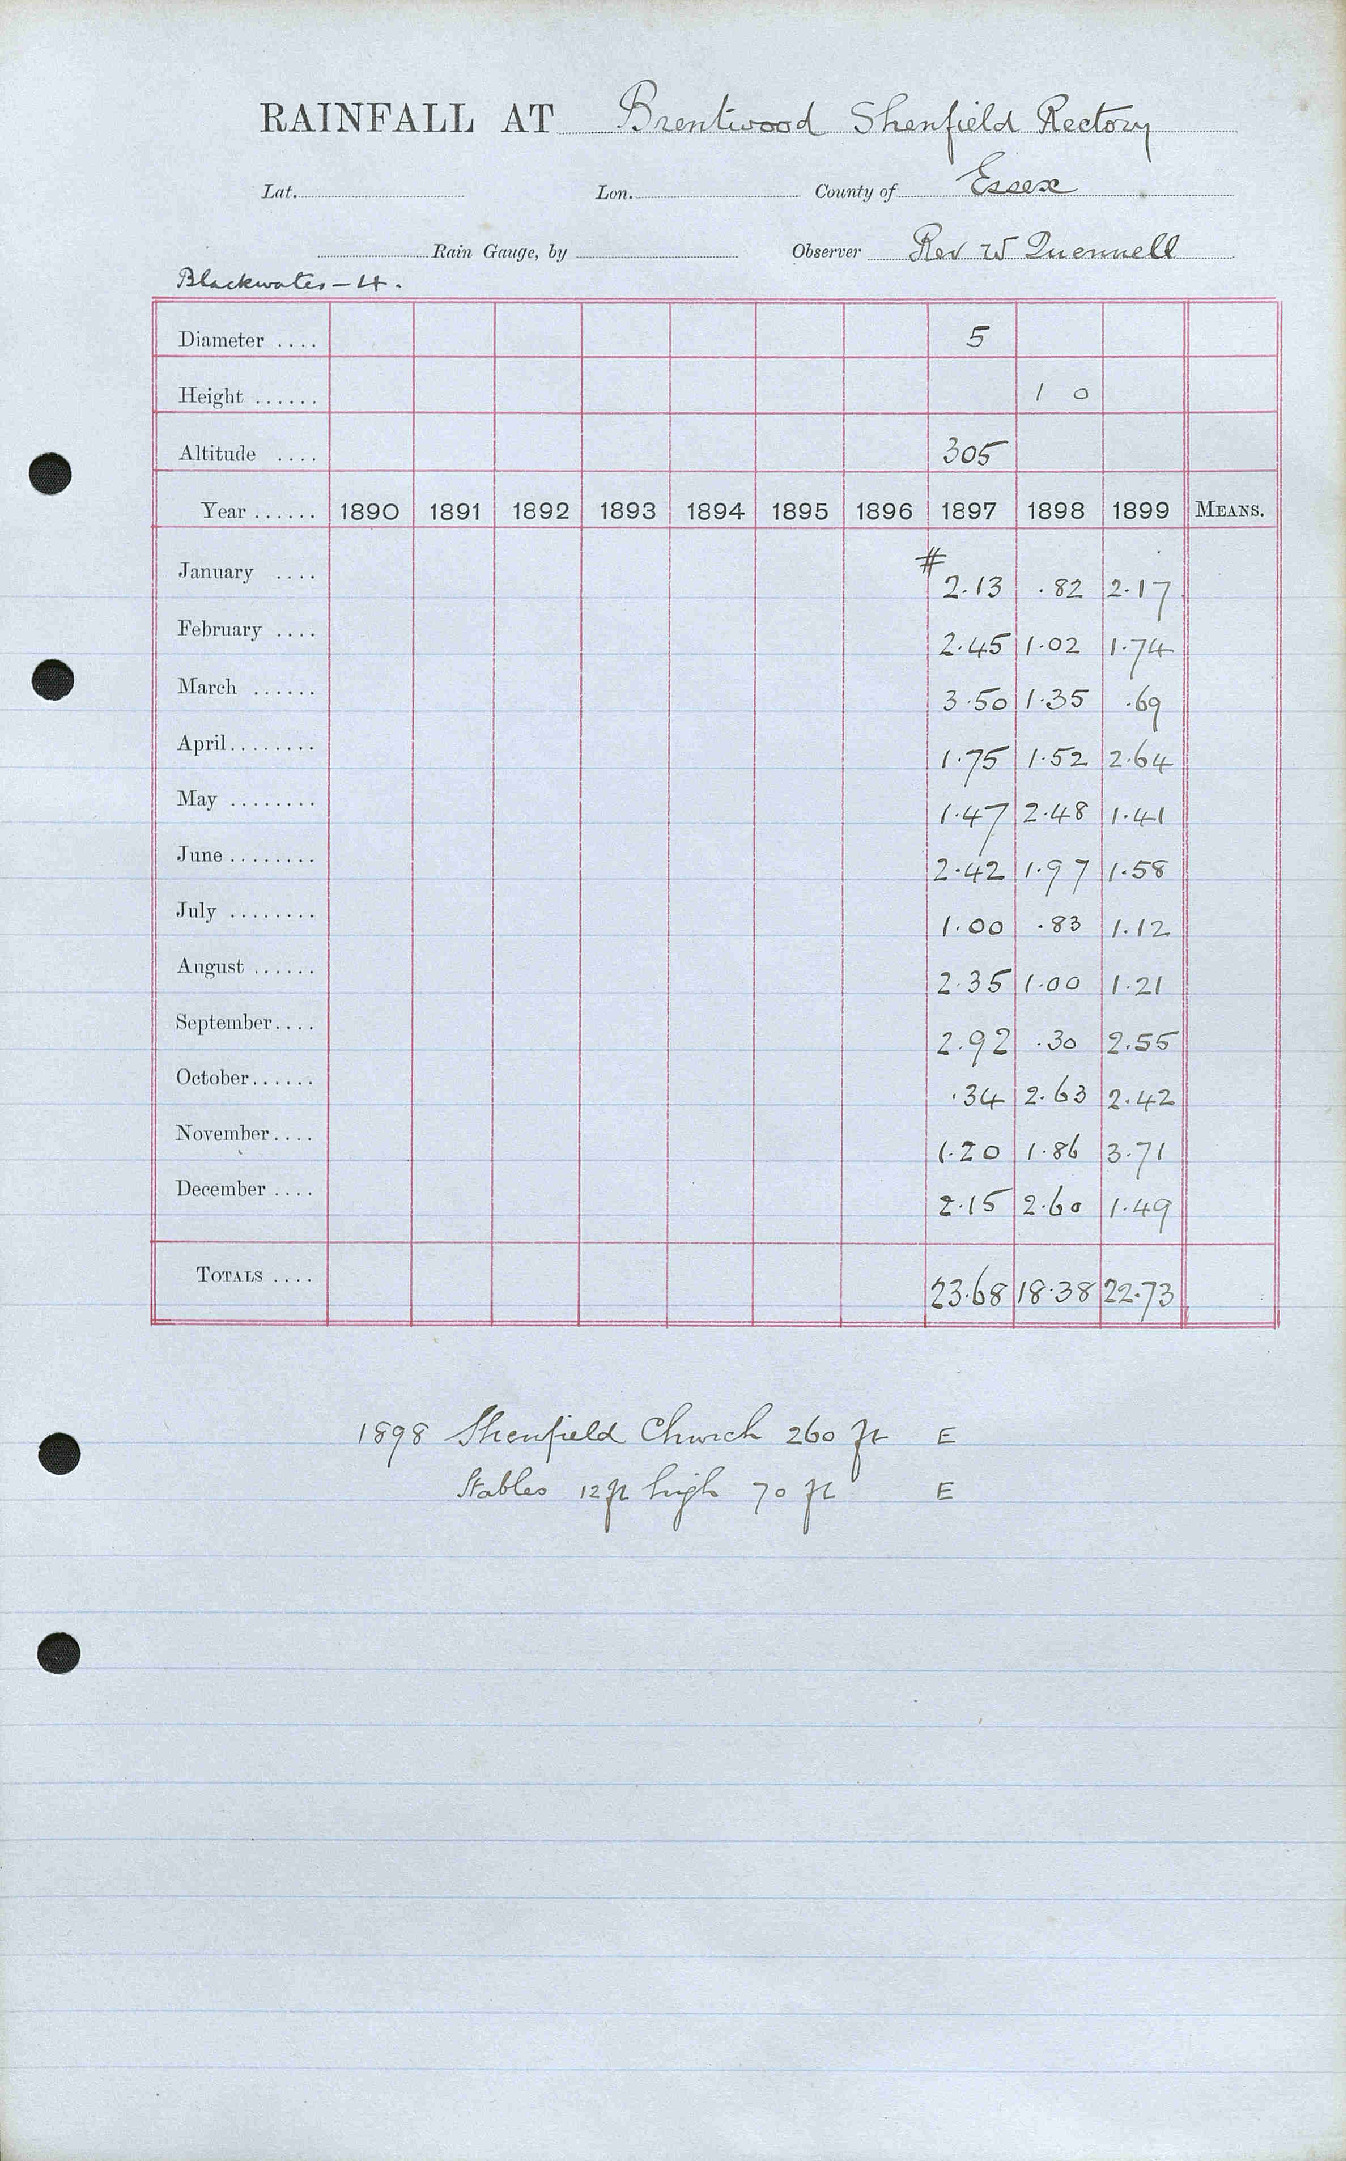 RAINFALL AT Brentwood Shenfield Rectory
Lat. Lon. County of Essex
Rain Gauge, by Observer Rev W Quennell
Blackwater - 4.
Diameter .... 5
Height ...... 1 0
Altitude .... 305
Year ...... 1890 1891 1892 1893 1894 1895 1896 1897 1898 1899 MEANS.
January .... # 2.13 .82 2.17
February .... 2.45 1.02 1.74
March ...... 3.50 1.35 .69
April........ 1.75 1.52 2.64
May ........ 1.47 2.48 1.41
June ........ 2.42 1.97 1.58
July ........ 1.00 .83 1.12
August ...... 2.35 1.00 1.21
September.... 2.92 .30 2.55
October...... .34 2.63 2.42
November.... 1.20 1.86 3.71
December .... 2.15 2.60 1.49
TOTALS .... 23.68 18.38 22.73
1898 Shenfield Church 260 ft E
Stables 12 ft high 70 ft E